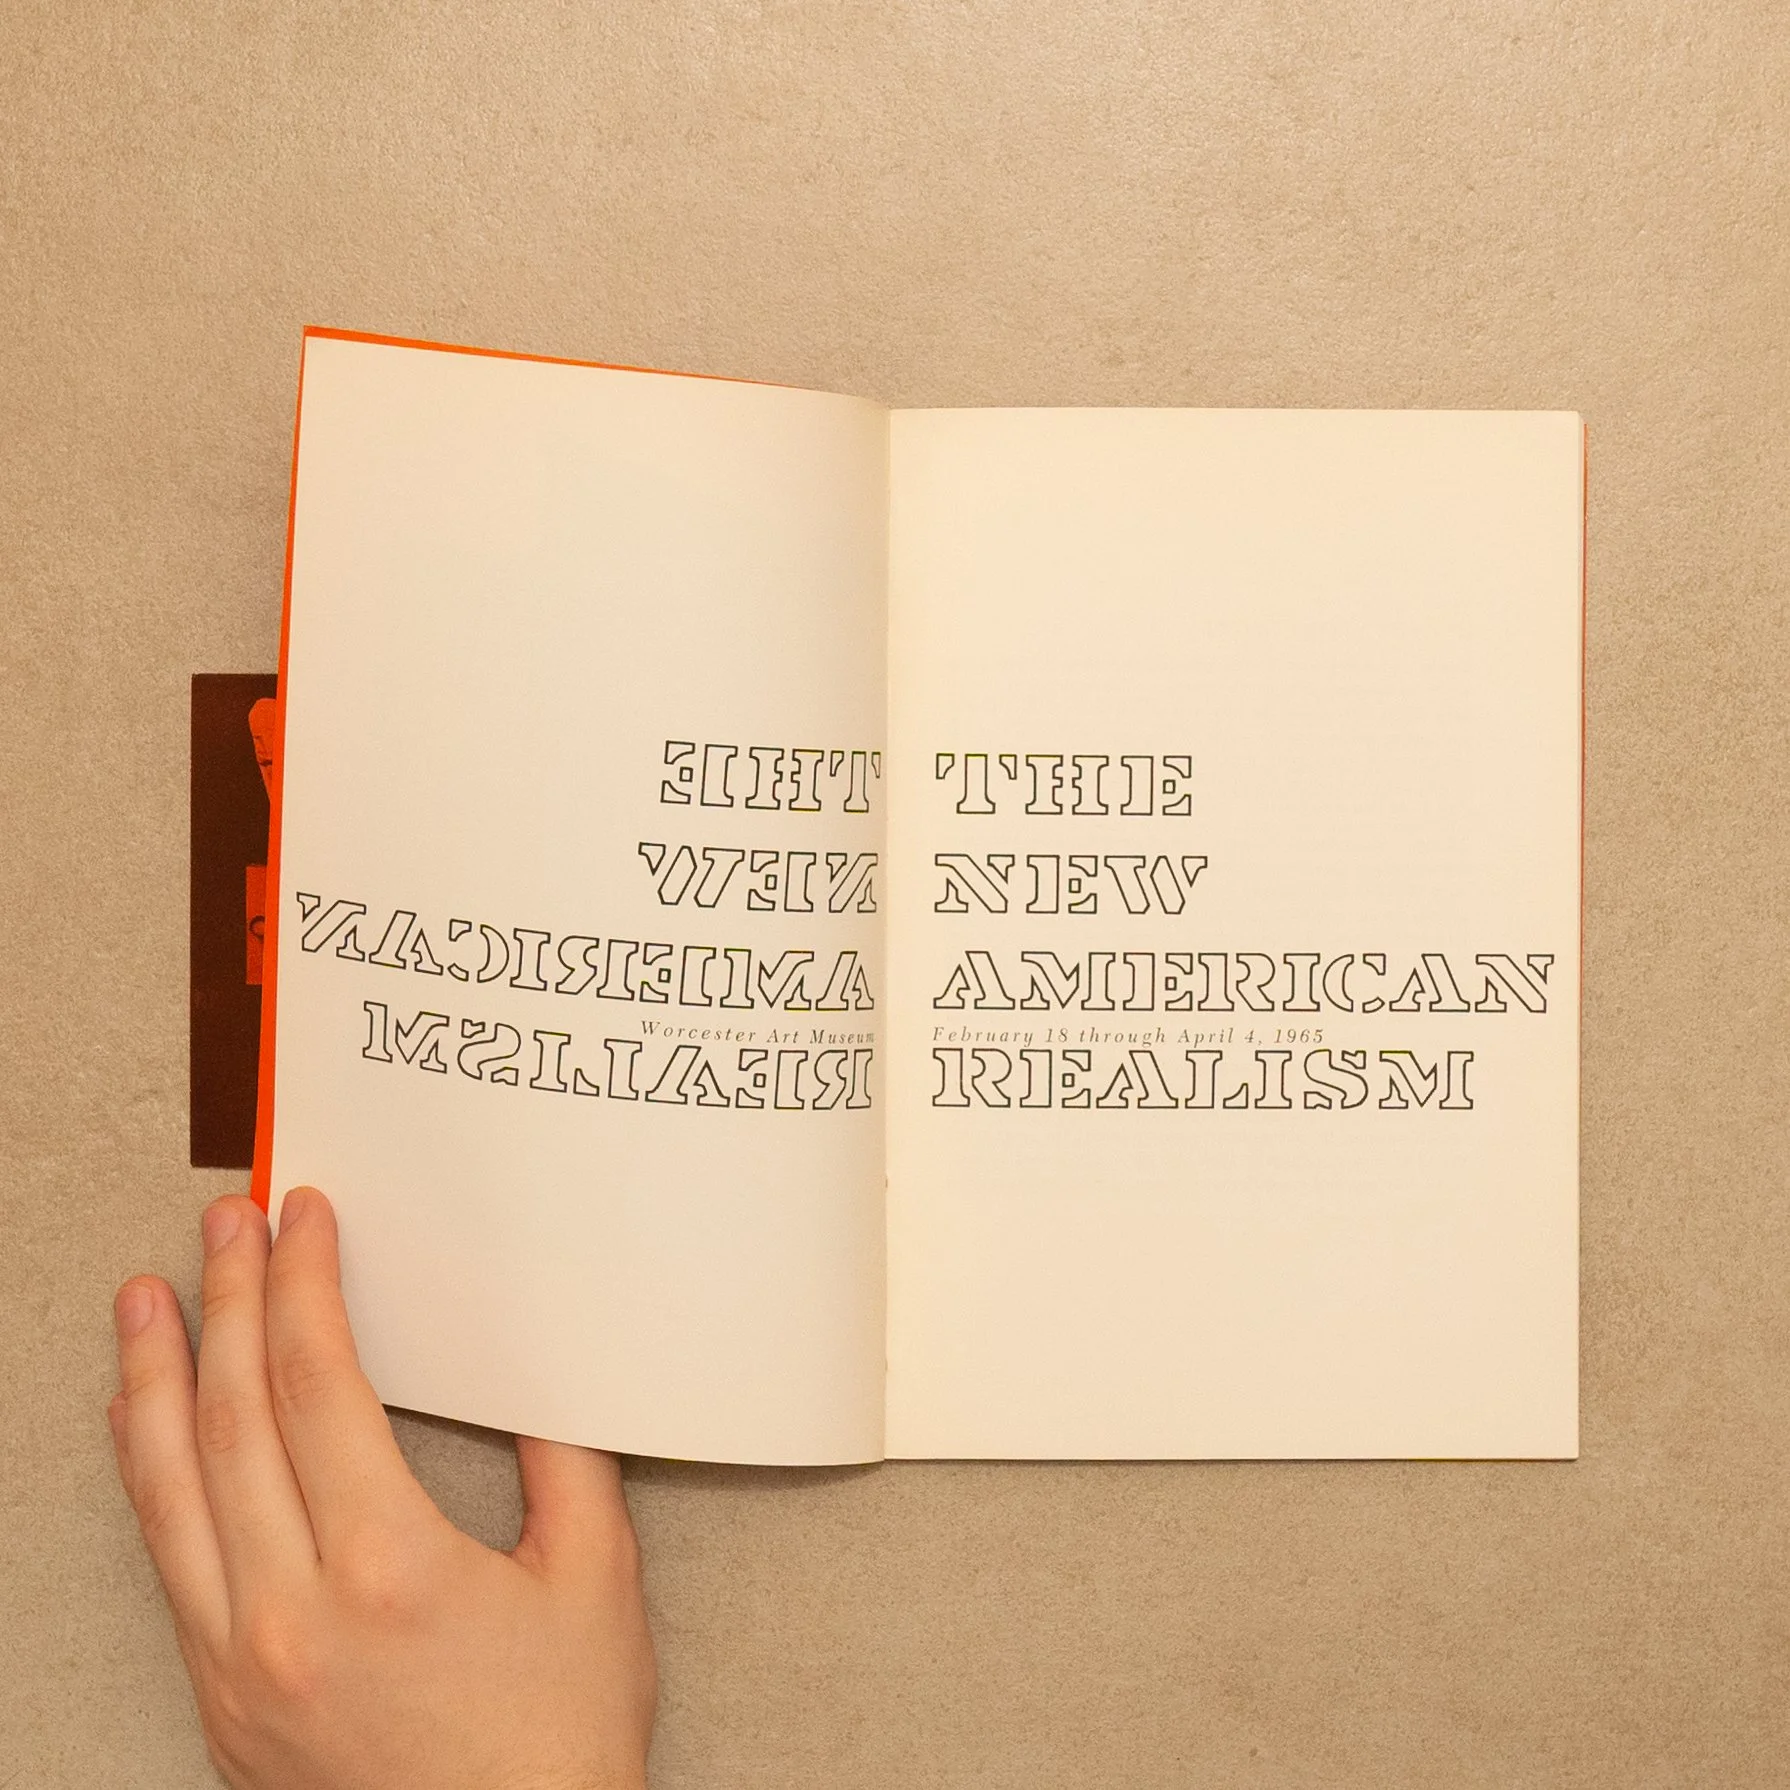 THE
NEW
AMERICAN
Worcester Art Museum
REALISM
THE
NEW
AMERICAN
February 18 through April 4, 1965
REALISM